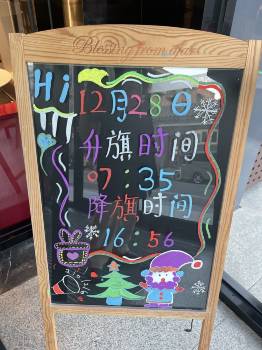 Blessing from afar
Hi
12月28日
升旗时间
07:35
降旗时间
16:56